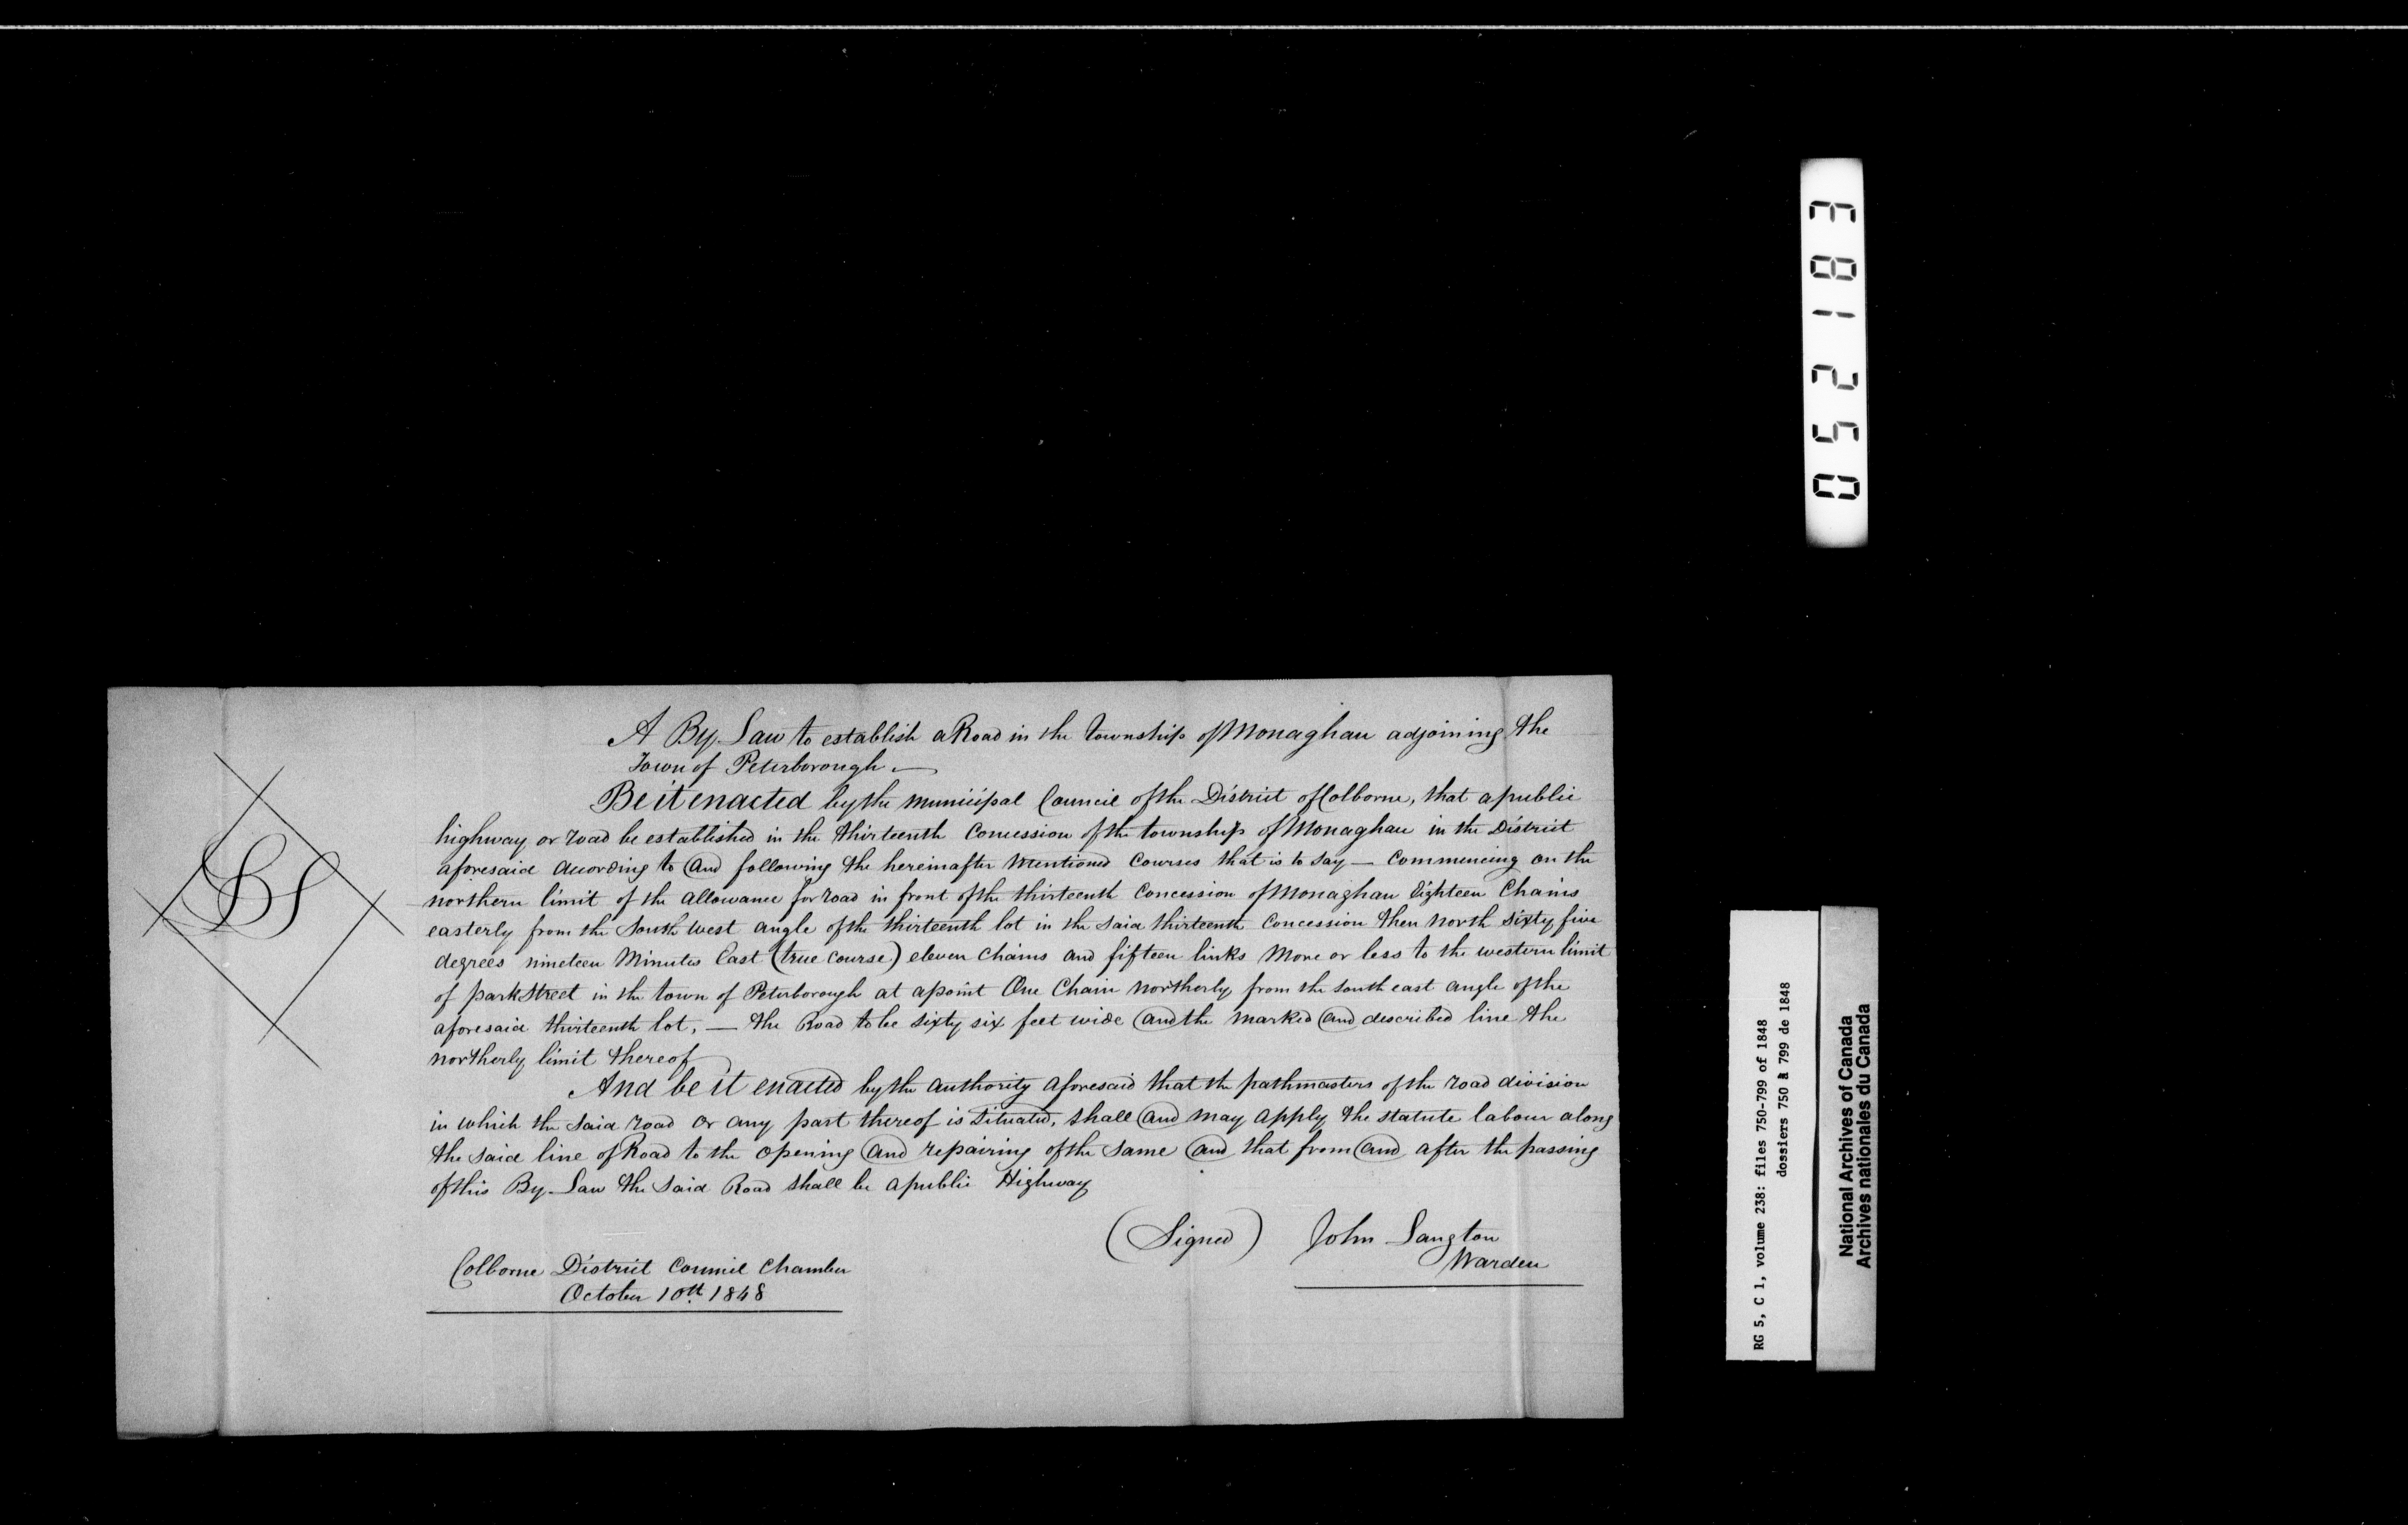 A By-Law to establish a Road in the Township of Monaghan adjoining the
Town of Peterborough —
Be it enacted by the Municipal Council of the District of Colborne, that a public
highway or road be established in the thirteenth Concession of the township of Monaghan in the District
aforesaid according to and following the hereinafter mentioned Courses that is to say — Commencing on the
northern limit of the allowance for road in front of the thirteenth Concession of Monaghan Eighteen Chains
easterly from the South west angle of the thirteenth lot in the said thirteenth Concession then North sixty five
degrees nineteen Minutes East (true course) eleven chains and fifteen links More or less to the western limit
of park Street in the town of Peterborough at a point One Chain Northerly from the south east angle of the
aforesaid thirteenth lot, — the Road to be sixty six feet wide and the marked and described line the
northerly limit thereof
And be it enacted by the authority aforesaid that the pathmasters of the road division
in which the said road or any part thereof is situated, shall and may apply the statute labour along
the said line of Road to the opening and repairing of the same and that from and after the passing
of this By-Law the said Road shall be a public Highway
(Signed) John Langton
Warden
Colborne District Council Chamber
October 10th 1848
LS
05218 3
RG 5, C 1, volume 238: files 750-799 of 1848
dossiers 750 à 799 de 1848
National Archives of Canada
Archives nationales du Canada